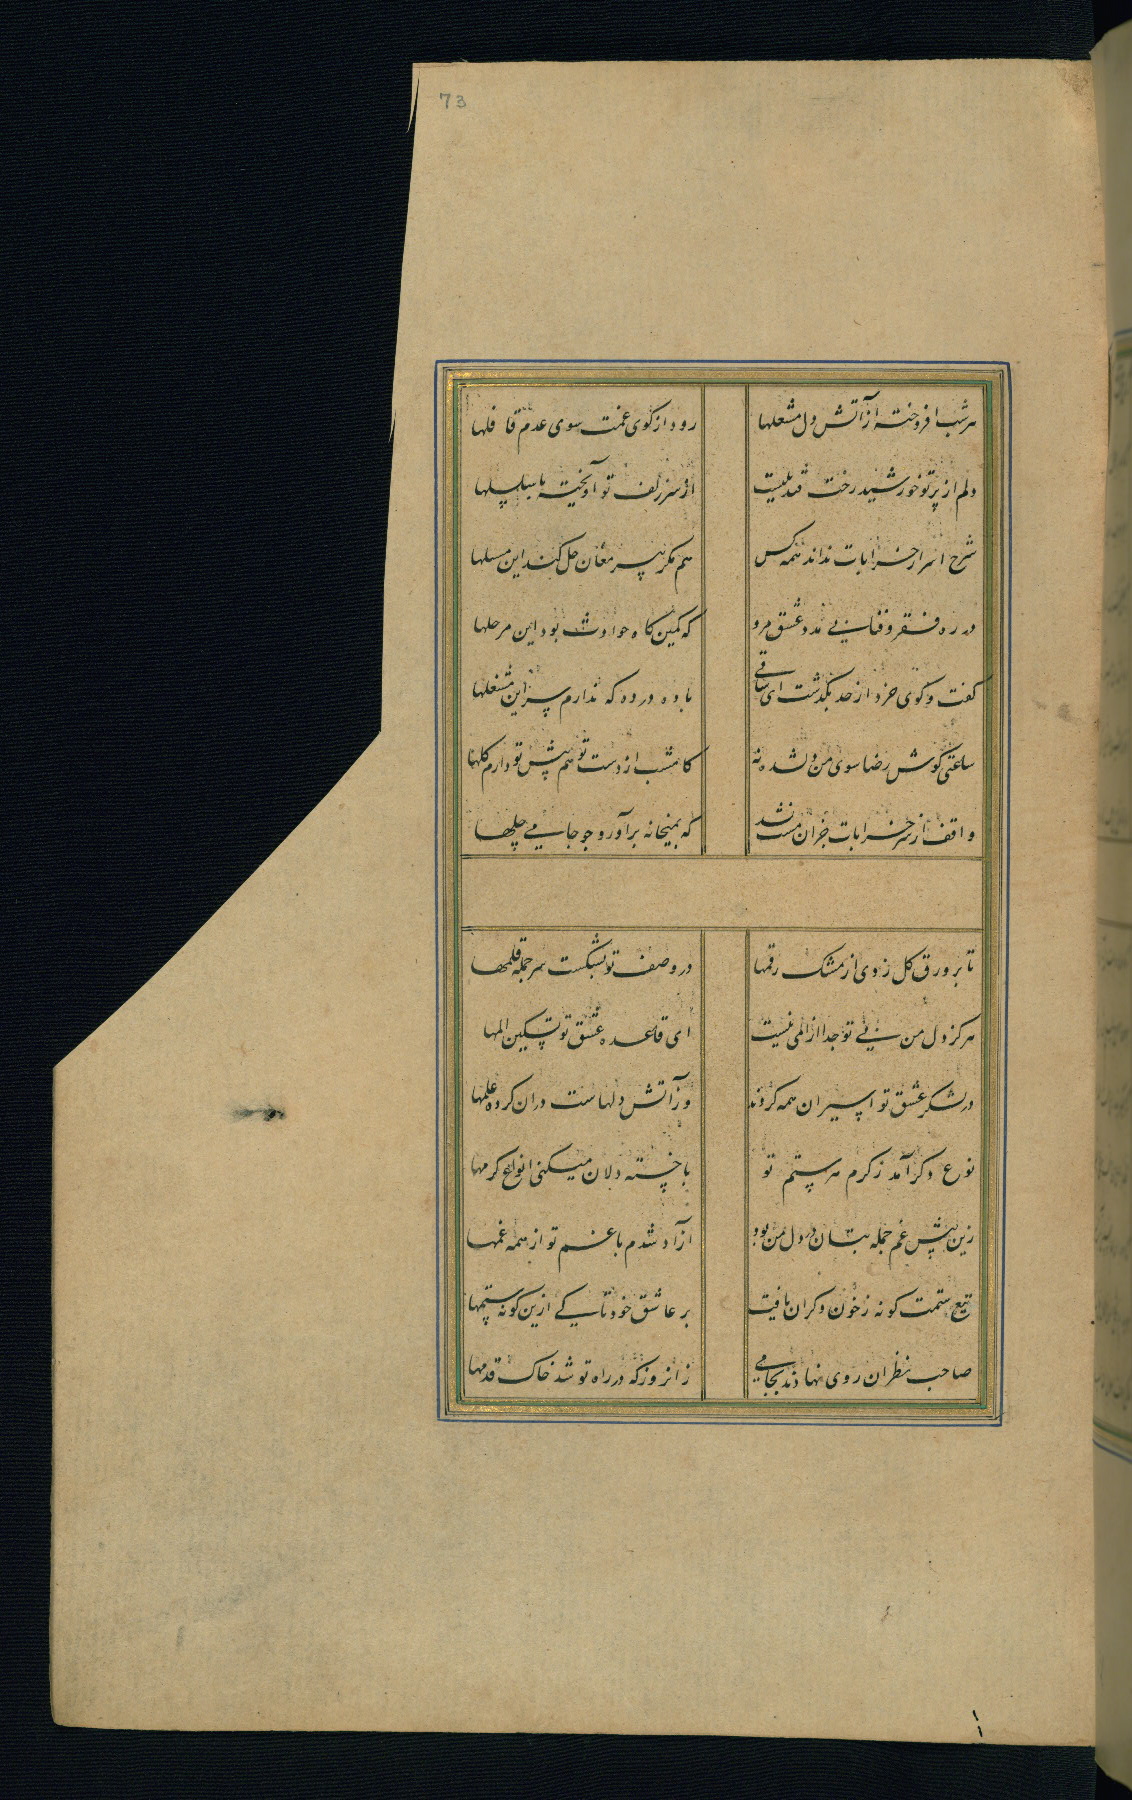 73
هر شب افروخته از آتش دل مشعلها
رود از کوی غمت سوی عدم قافلها
دلم از پرتو خورشید رخت قندیلیست
از سر زلف تو آویخته با سلسلها
شرح اسرار خرابات نداند همه کس
هم مکر پیر مغان حل کند این مسلها
در ره فقر و فنا بی مدد عشق مرو
که کمین کاه حوادث بود این مرحلها
کفت و کوی خرد از حد بکذشت ای ساقی
باده در ده که ندارم سر این مشغلها
ساعتی کوش رضا سوی من دلشده نه
کامشب از دست تو هم پیش تو دارم کلها
واقف از سر خرابات جز آن مست نشد
که بمیخانه برآورد چو جامی چلها
تا بر ورق کل زدی از مشک رقمها
در وصف تو بشکست سر جمله قلمها
هرکز دل من بی تو جدا از المی نیست
ای قاعده عشق تو تسکین المها
در لشکر عشق تو اسیران همه کردند
وز آتش دلهاست در ان کرده علمها
نوع دکر آمد ز کرم هر ستم تو
با خسته دلان میکنی انواع کرمها
زین پیش غم جمله بتان در دل من بود
آزاد شدم با غم تو از همه غمها
تیغ ستمت کونه ز خون دکران یافت
بر عاشق خود تا کی ازین کونه ستمها
صاحب نظران روی نهادند بجامی
زانروز که در راه تو شد خاک قدمها